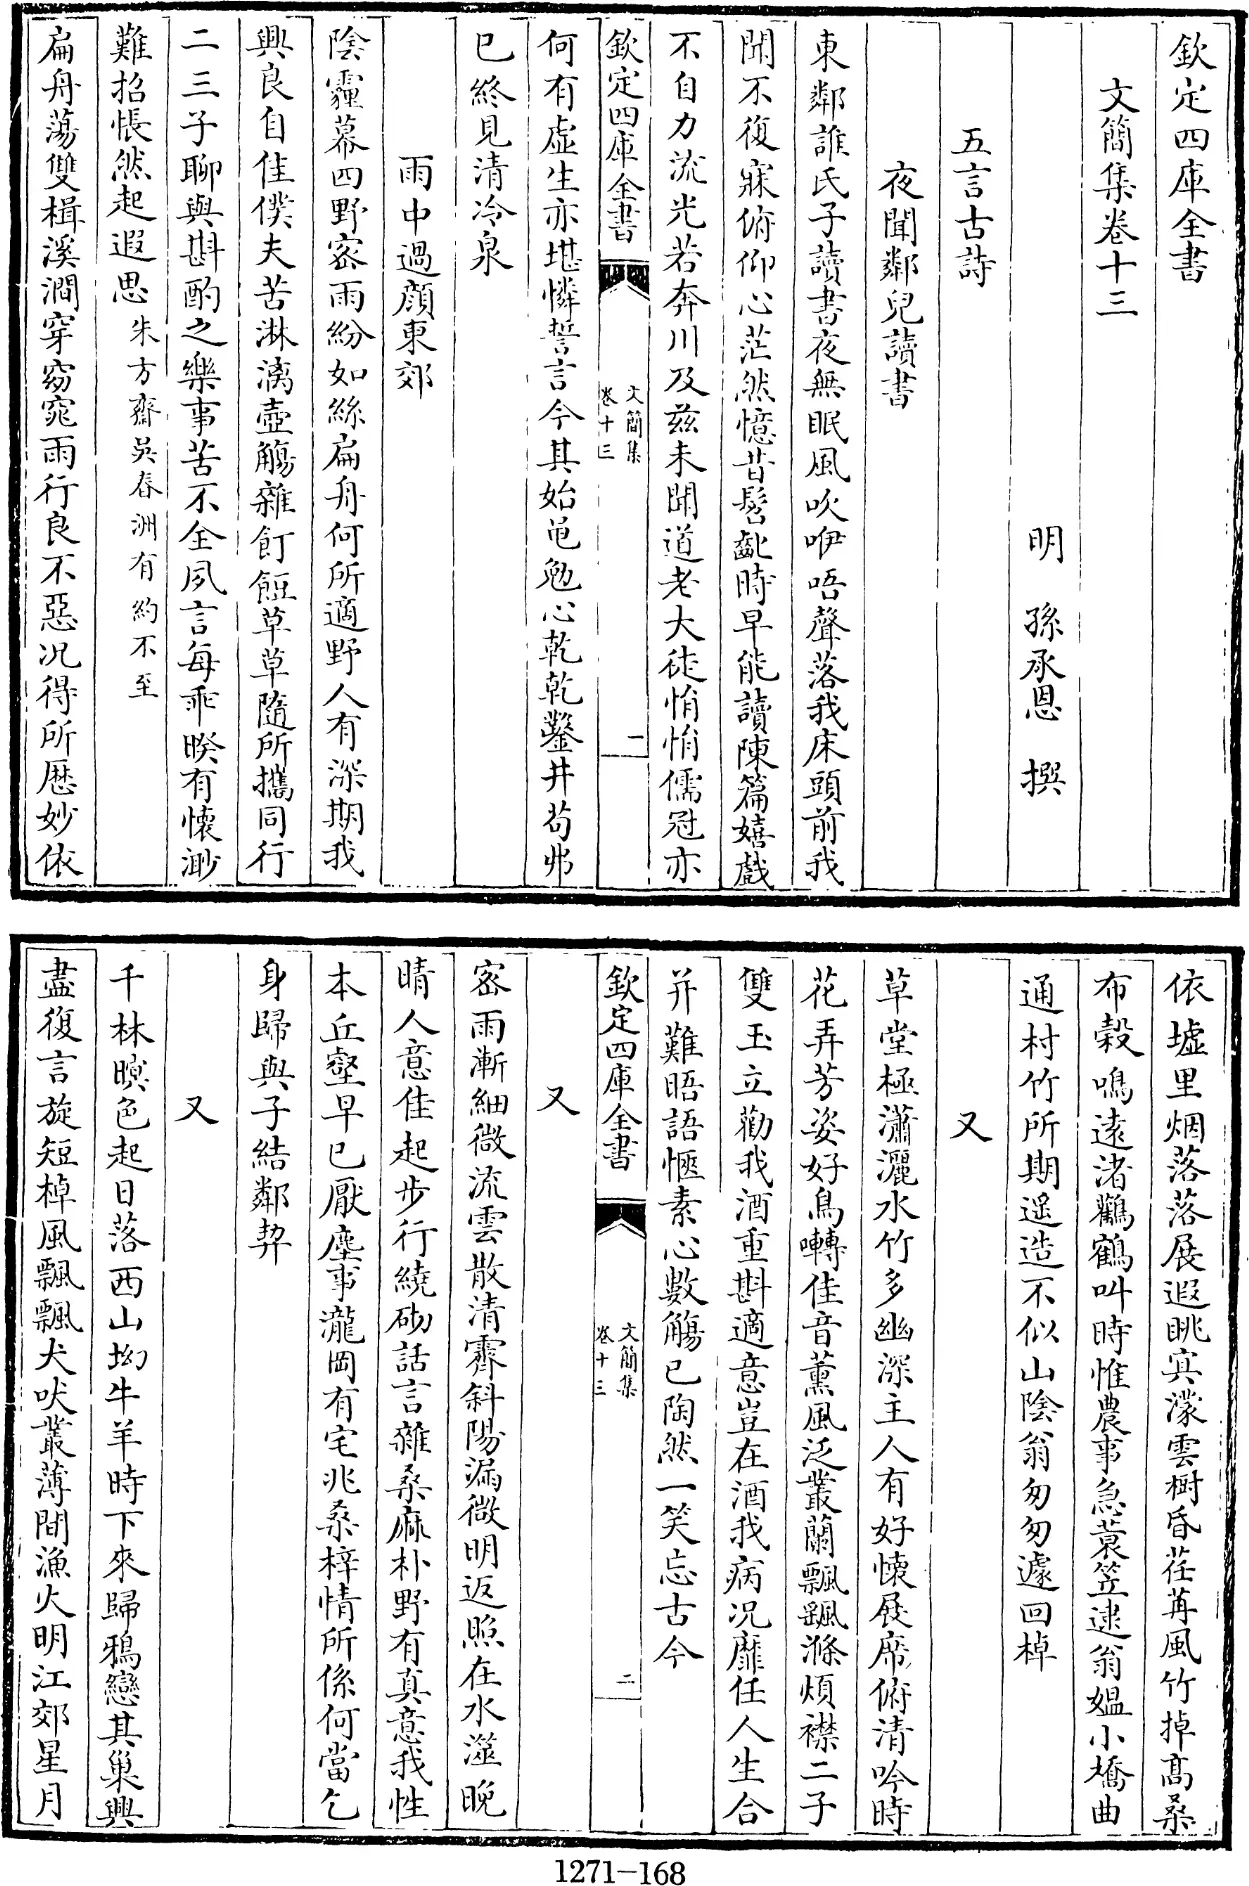 欽定四庫全書
文簡集卷十三
明　孫承恩　撰
五言古詩
夜聞鄰兒讀書
東鄰誰氏子讀書夜無眠風吹咿唔聲落我床頭前我
聞不復寐俯仰心茫然憶昔髫齔時早能讀陳篇嬉戲
不自力流光若奔川及茲未聞道老大徒悁悁儒冠亦
欽定四庫全書
文簡集
卷十三
一
何有虛生亦堪憐誓言今其始黽勉心乾乾鑿井苟弗
已終見清泠泉
雨中過顔東郊
陰霾幕四野密雨紛如絲扁舟何所適野人有深期我
興良自佳僕夫苦淋漓壺觴雜飣餖草草隨所攜同行
二三子聊與斟酌之樂事苦不全夙言每乖暌有懷渺
難招悵然起遐思朱方齋吳春洲有約不至
扁舟蕩雙楫溪澗穿窈窕雨行良不惡況得所歷妙依
依墟里烟落落展遐眺㝠濛雲樹昏荏苒風竹掉高桑
布穀鳴遠渚鸛鶴叫時惟農事急蓑笠逮翁媼小橋曲
通村竹所期遥造不似山陰翁匆匆遽回棹
又
草堂極瀟灑水竹多幽深主人有好懷展席俯清吟時
花弄芳姿好鳥囀佳音薰風泛叢蘭飄飄滌煩襟二子
雙玉立勸我酒重斟適意豈在酒我病况靡任人生合
并難晤語愜素心數觴已陶然一笑忘古今
欽定四庫全書
文簡集
卷十三
二
又
密雨漸細微流雲散清霽斜陽漏微明返照在水澨晚
晴人意佳起步行繞砌話言雜桑麻朴野有真意我性
本丘壑早已厭塵事瀧岡有宅兆桑梓情所係何當乞
身歸與子結鄰契
又
千林暝色起日落西山坳牛羊時下來歸鴉戀其巢興
盡復言旋短棹風飄飄犬吠叢薄間漁火明江郊星月
1271-168